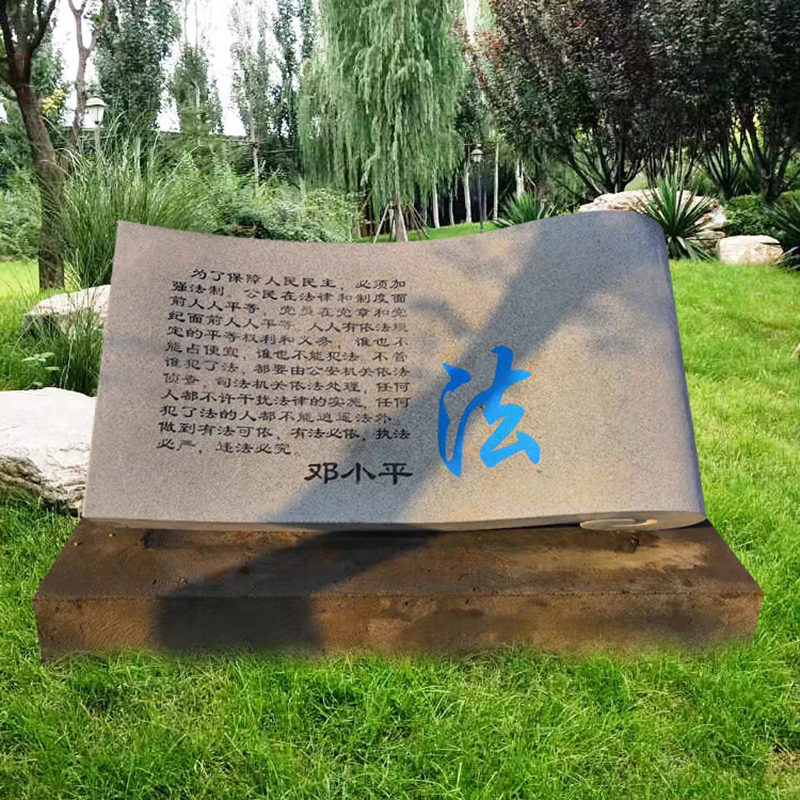 为了保障人民民主，必须加
强法制，公民在法律和制度面
前人人平等，党员在党章和党
纪面前人人平等。人人有依法规
定的平等权利和义务，谁也不
能占便宜，谁也不能犯法。不管
谁犯了法，都要由公安机关依法
侦查，司法机关依法处理，任何
人都不许干扰法律的实施，任何
犯了法的人都不能逍遥法外。
做到有法可依，有法必依，执法
必严，违法必究。
邓小平
法